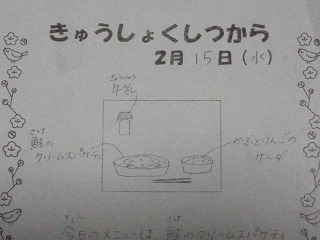 きゅうしょくしつから
2月15日(水)
ぎゅうにゅう
牛乳
さけ
鮭の
クリームスパゲティ
かぶとりんごの
サラダ
きょう さけ
今日のメニューは 鮭のクリームスパゲティ